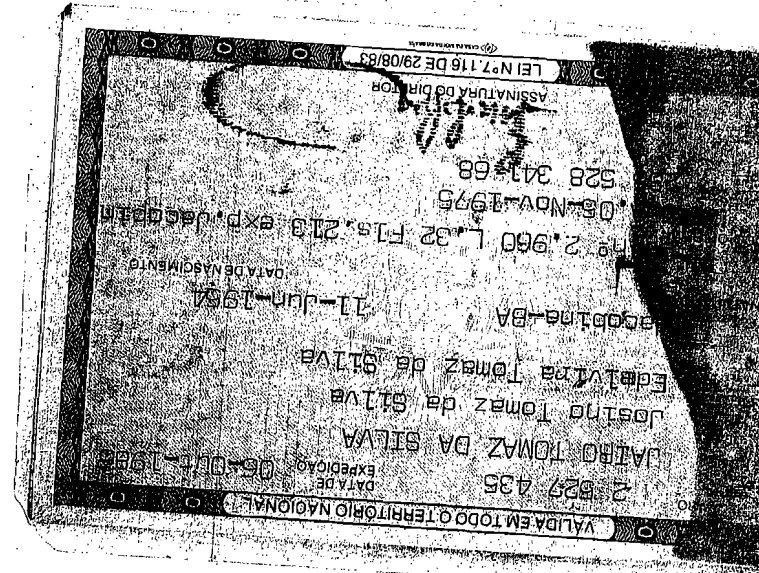 VÁLIDA EM TODO O TERRITÓRIO NACIONAL
2 527 435 DATA DE EXPEDIÇÃO 06-Out-1986
JAIRO TOMAZ DA SILVA
Josino Tomaz da Silva
Edelvira Tomaz da Silva
acobina-BA 11-Jun-1964
DATA DE NASCIMENTO
nº 2.960 L.32 Fls.213 exp.Jacobin
.05-Nov-1975
528 341 68
ASSINATURA DO DIRETOR
LEI Nº 7.116 DE 29/08/83